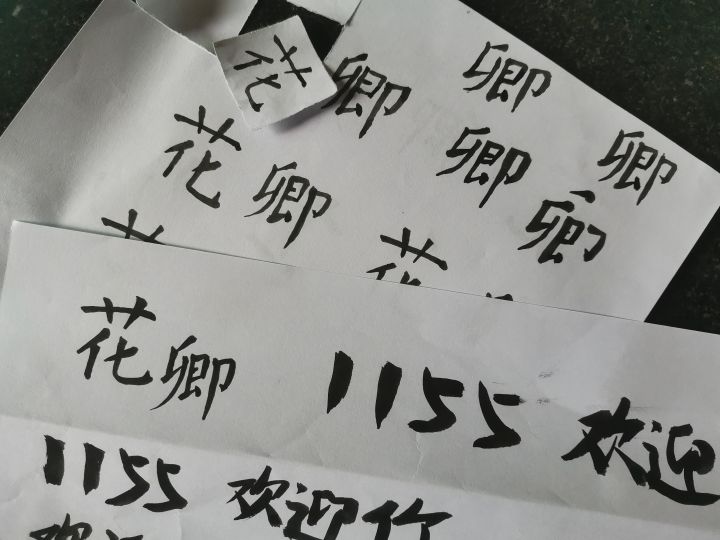 花卿 卿
卿 卿
花卿
卿
花
花卿 1155 欢迎
1155 欢迎你
欢迎